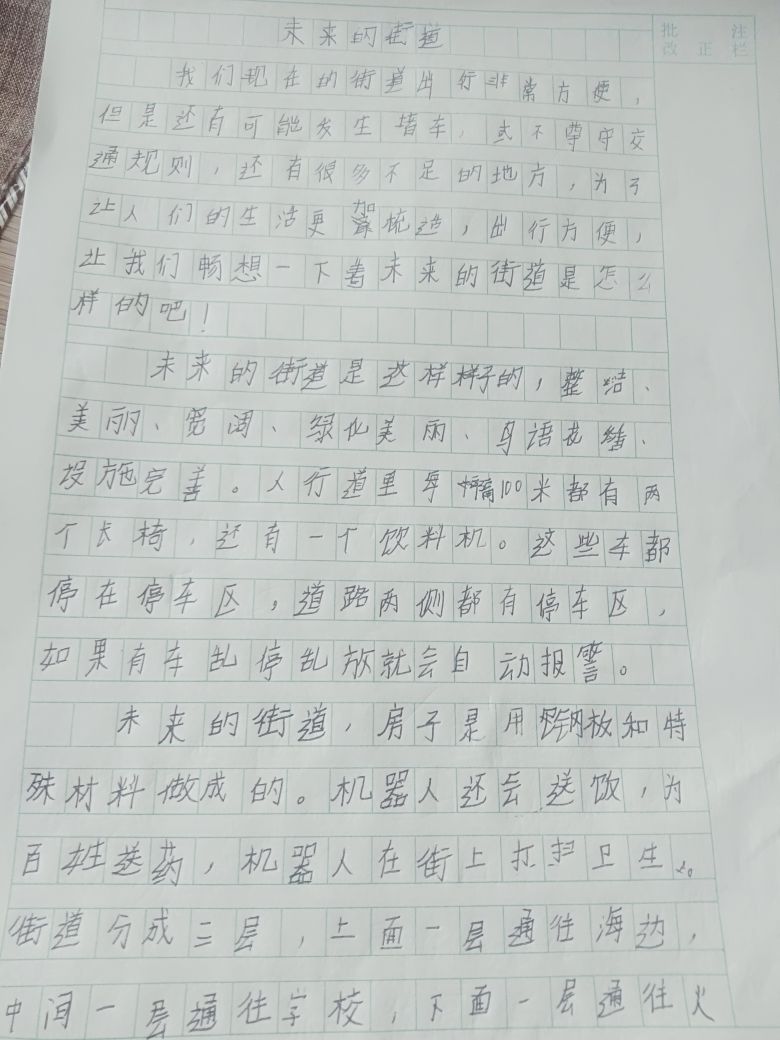 未来的街道
批 注
改 正 栏
我们现在的街道出行非常方便，
但是还有可能发生堵车，或不尊守交
通规则，还有很多不足的地方，为了
让人们的生活更加 ，出行方便，
让我们畅想一下 未来的街道是怎么
样的吧！
未来的街道是这样样子的，整洁、
美丽、宽阔、绿化美丽、鸟语花 、
设施完善。人行道里每隔100米都有两
个长椅，还有一个饮料机。这些车都
停在停车区，道路两侧都有停车区，
如果有车乱停乱放就会自动报警。
未来的街道，房子是用钢板和特
殊材料做成的。机器人还会送饭，为
百姓送药，机器人在街上打扫卫生。
街道分成三层，上面一层通往海边，
中间一层通往学校，下面一层通往火